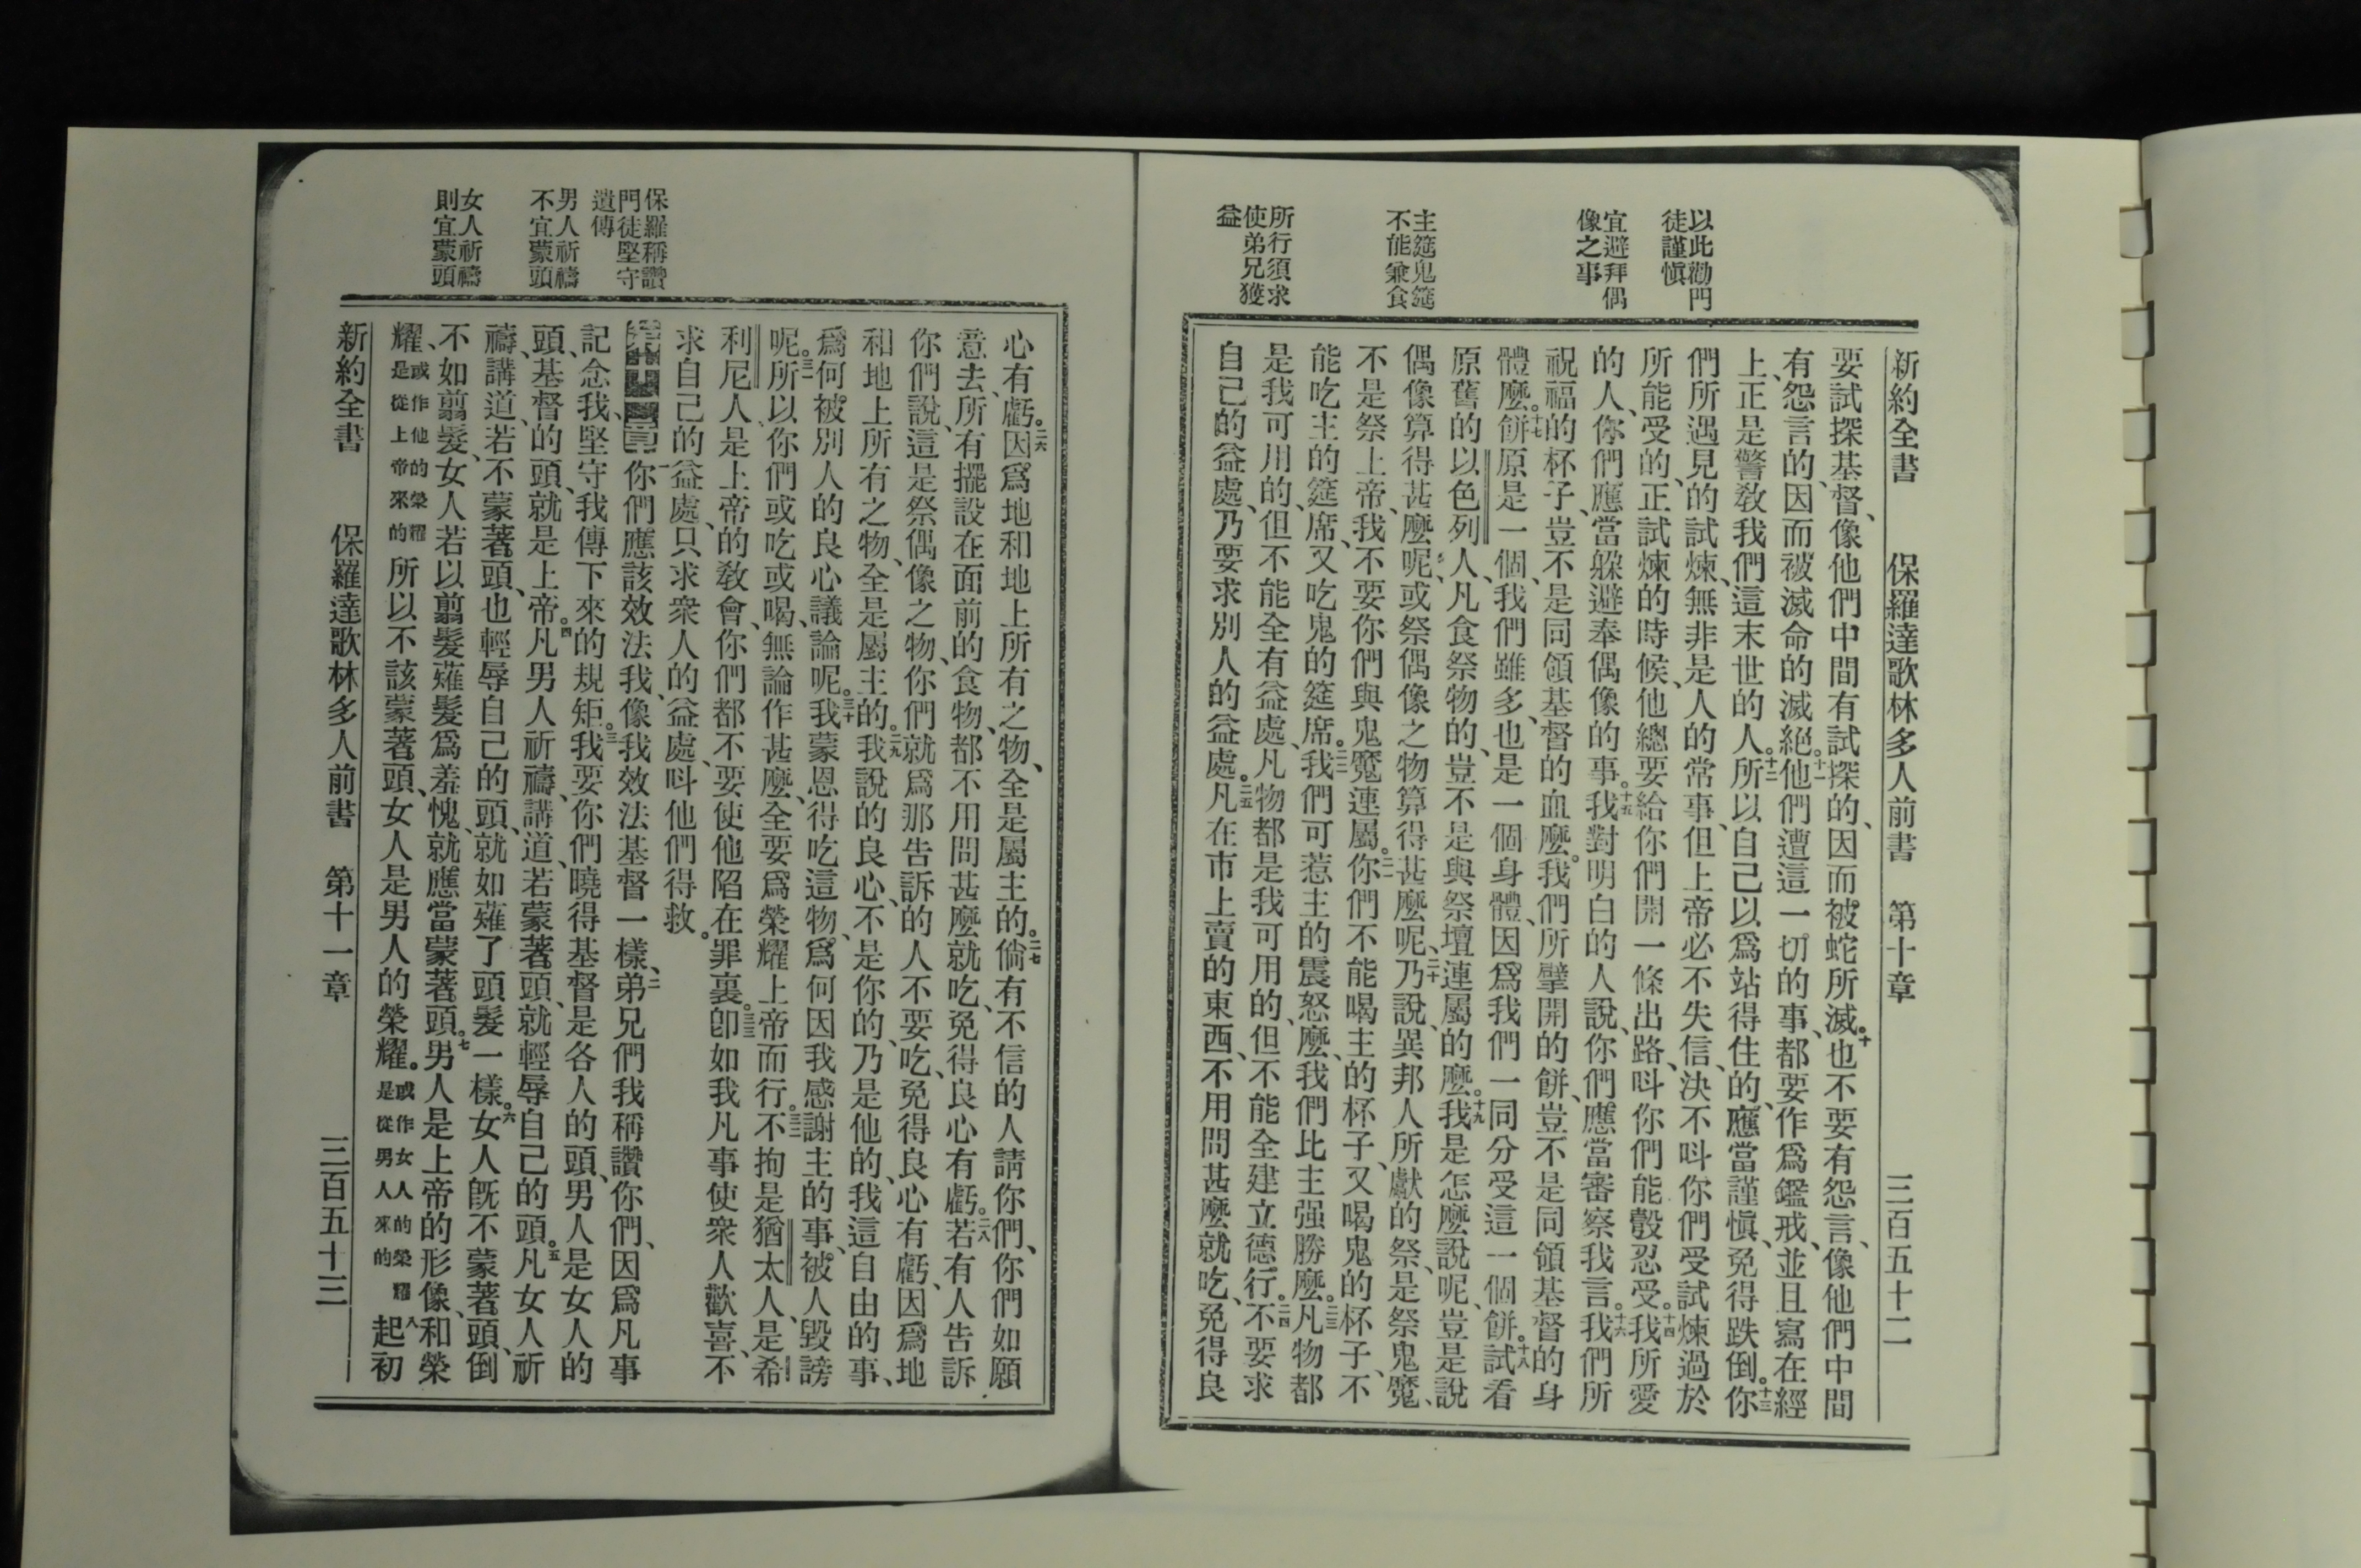 以此勸門
徒謹愼
宜避拜偶
像之事
主筵鬼筵
不能兼食
所行須求
使弟兄獲
益
新約全書 保羅達歌林多人前書 第十章 三百五十二
要試探基督、像他們中間有試探的、因而被蛇所滅。十也不要有怨言、像他們中間
有怨言的、因而被滅命的滅絕。十一他們遭這一切的事、都要作爲鑑戒、並且寫在經
上、正是警敎我們這末世的人。十二所以自己以爲站得住的、應當謹愼、免得跌倒。十三你
們所遇見的試煉、無非是人的常事、但上帝必不失信、決不呌你們受試煉過於
所能受的、正試煉的時候、他總要給你們開一條出路、呌你們能彀忍受。十四我所愛
的人、你們應當躱避奉偶像的事。十五我對明白的人說、你們應當審察我言。十六我們所
祝福的杯子、豈不是同領基督的血麼。我們所擘開的餅、豈不是同領基督的身
體麼。十七餅原是一個、我們雖多、也是一個身體、因爲我們一同分受這一個餅。十八試看
原舊的以色列人、凡食祭物的、豈不是與祭壇連屬的麼。十九我是怎麼說呢、豈是說
偶像算得甚麼呢、或祭偶像之物算得甚麼呢、二十乃說、異邦人所獻的祭、是祭鬼魔、
不是祭上帝、我不要你們與鬼魔連屬。二一你們不能喝主的杯子、又喝鬼的杯子、不
能吃主的筵席、又吃鬼的筵席。二二我們可惹主的震怒麼、我們比主强勝麼。二三凡物都
是我可用的、但不能全有益處、凡物都是我可用的、但不能全建立德行。二四不要求
自己的益處、乃要求別人的益處。二五凡在市上賣的東西、不用問甚麼就吃、免得良
保羅稱讚
門徒堅守
遺傳
男人祈禱
不宜蒙頭
女人祈禱
則宜蒙頭
心有虧。二六因爲地和地上所有之物、全是屬主的。二七倘有不信的人請你們、你們如願
意去、所有擺設在面前的食物、都不用問甚麼就吃、免得良心有虧。二八若有人告訴
你們說、這是祭偶像之物、你們就爲那告訴的人不要吃、免得良心有虧、因爲地
和地上所有之物、全是屬主的。二九我說的良心、不是你的、乃是他的、我這自由的事、
爲何被別人的良心議論呢。三十我蒙恩得吃這物、爲何因我感謝主的事、被人毀謗
呢。三一所以你們或吃或喝、無論作甚麼、全要爲榮耀上帝而行。三二不拘是猶太人、是希
利尼人、是上帝的敎會、你們都不要使他陷在罪裏。三三卽如我凡事使衆人歡喜、不
求自己的益處、只求衆人的益處、呌他們得救。
第十一章 一你們應該效法我、像我效法基督一樣、二弟兄們我稱讚你們、因爲凡事
記念我、堅守我傳下來的規矩。三我要你們曉得基督是各人的頭、男人是女人的
頭、基督的頭、就是上帝。四凡男人祈禱、講道、若蒙著頭、就輕辱自己的頭。五凡女人祈
禱、講道、若不蒙著頭、也輕辱自己的頭、就如薙了頭髮一樣。六女人旣不蒙著頭、倒
不如翦髮、女人若以翦髮薙髮爲羞愧、就應當蒙著頭。七男人是上帝的形像、和榮
耀、或作他的榮耀是從上帝來的所以不該蒙著頭、女人是男人的榮耀。或作女人的榮耀是從男人來的八起初
新約全書 保羅達歌林多人前書 第十一章 三百五十三